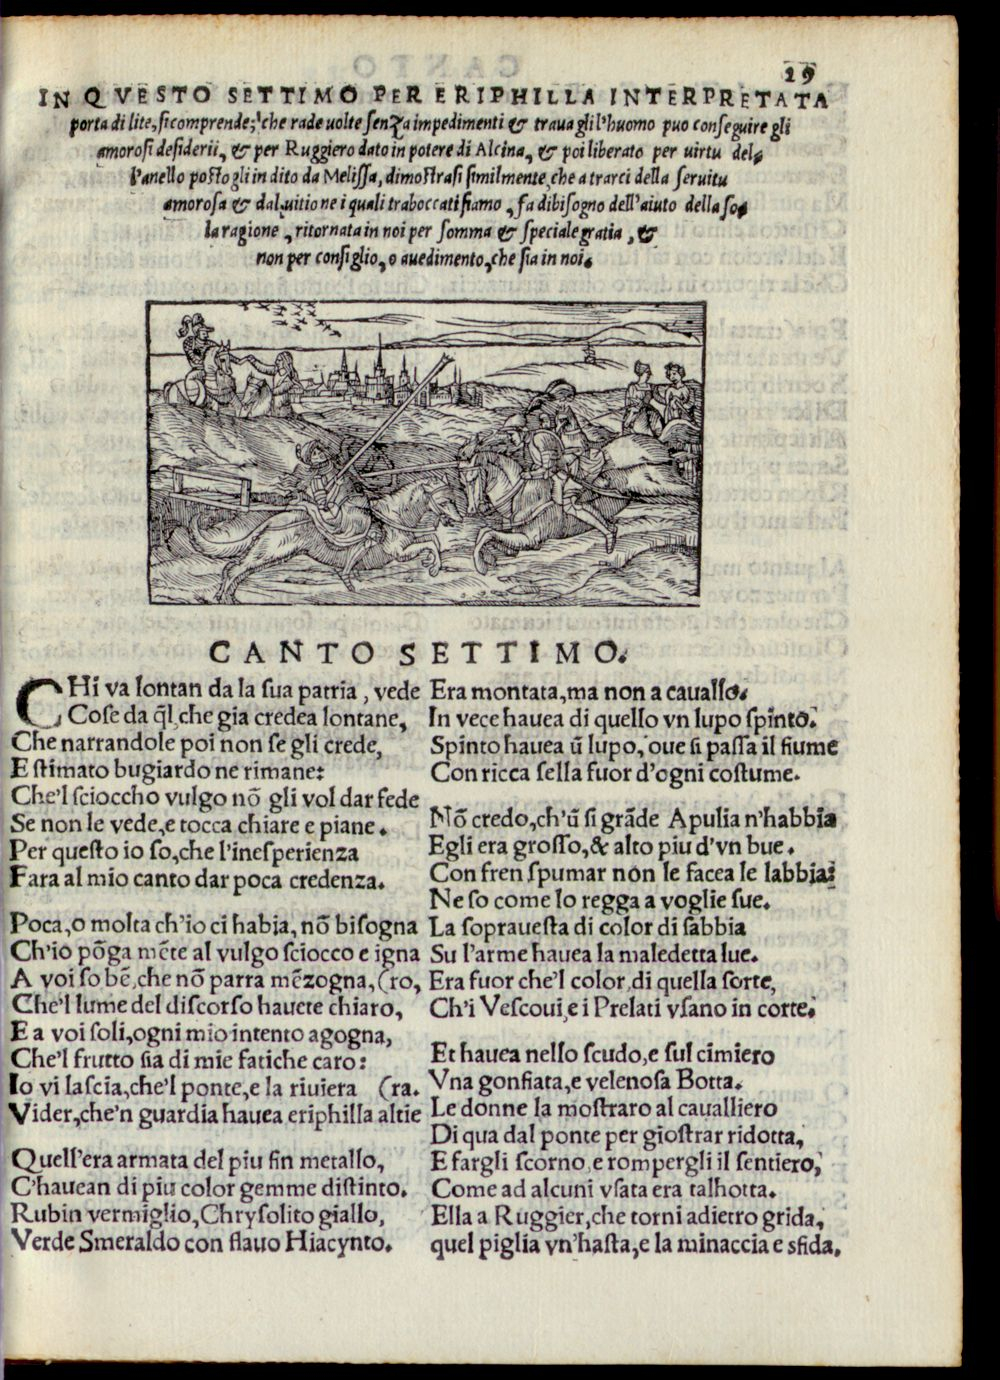 29
IN QVESTO SETTIMO PER ERIPHILLA INTERPRETATA
porta di lite, si comprende, che rade uolte senza impedimenti & trauagli l'huomo puo conseguire gli
amorosi desiderii, & per Ruggiero dato in potere di Alcina, & poi liberato per uirtu del,
l'anello postogli in dito da Melissa, dimostrasi similmente che a trarci della seruitu
amorosa & dal uitio ne i quali traboccati siamo, fa dibisogno dell'aiuto della so,
la ragione, ritornata in noi per somma & speciale gratia, &
non per consiglio, o auedimento, che sia in noi.
CANTO SETTIMO.
CHi va lontan da la sua patria, vede
Cose da q̃l, che gia credea lontane,
Che narrandole poi non se gli crede,
E stimato bugiardo ne rimane:
Che'l scioccho vulgo nõ gli vol dar fede
Se non le vede, e tocca chiare e piane.
Per questo io so, che l'inesperienza
Fara al mio canto dar poca credenza.
Poca, o molta ch'io ci habia, nõ bisogna
Ch'io põga mẽte al vulgo sciocco e igna
A voi so bẽ, che nõ parra mẽzogna, (ro,
Che'l lume del discorso hauete chiaro,
E a voi soli, ogni mio intento agogna,
Che'l frutto sia di mie fatiche caro:
Io vi lascia, che'l ponte, e la riuiera (ra.
Vider, che'n guardia hauea eriphilla altie
Quell'era armata del piu fin metallo,
C'hauean di piu color gemme distinto.
Rubin vermiglio, Chrysolito giallo,
Verde Smeraldo con flauo Hiacynto.
Era montata, ma non a cauallo.
In vece hauea di quello vn lupo spinto.
Spinto hauea ũ lupo, oue si passa il fiume
Con ricca sella fuor d'ogni costume.
Nõ credo, ch'ũ si grãde Apulia n'habbia
Egli era grosso, & alto piu d'vn bue.
Con fren spumar non le facea le labbia:
Ne so come lo regga a voglie sue.
La soprauesta di color di sabbia
Su l'arme hauea la maledetta lue.
Era fuor che'l color, di quella sorte,
Ch'i Vescoui, e i Prelati vsano in corte.
Et hauea nello scudo, e sul cimiero
Vna gonfiata, e velenosa Botta.
Le donne la mostraro al caualliero
Di qua dal ponte per giostrar ridotta,
E fargli scorno, e rompergli il sentiero,
Come ad alcuni vsata era talhotta.
Ella a Ruggier, che torni adietro grida,
quel piglia vn'hasta, e la minaccia e sfida.